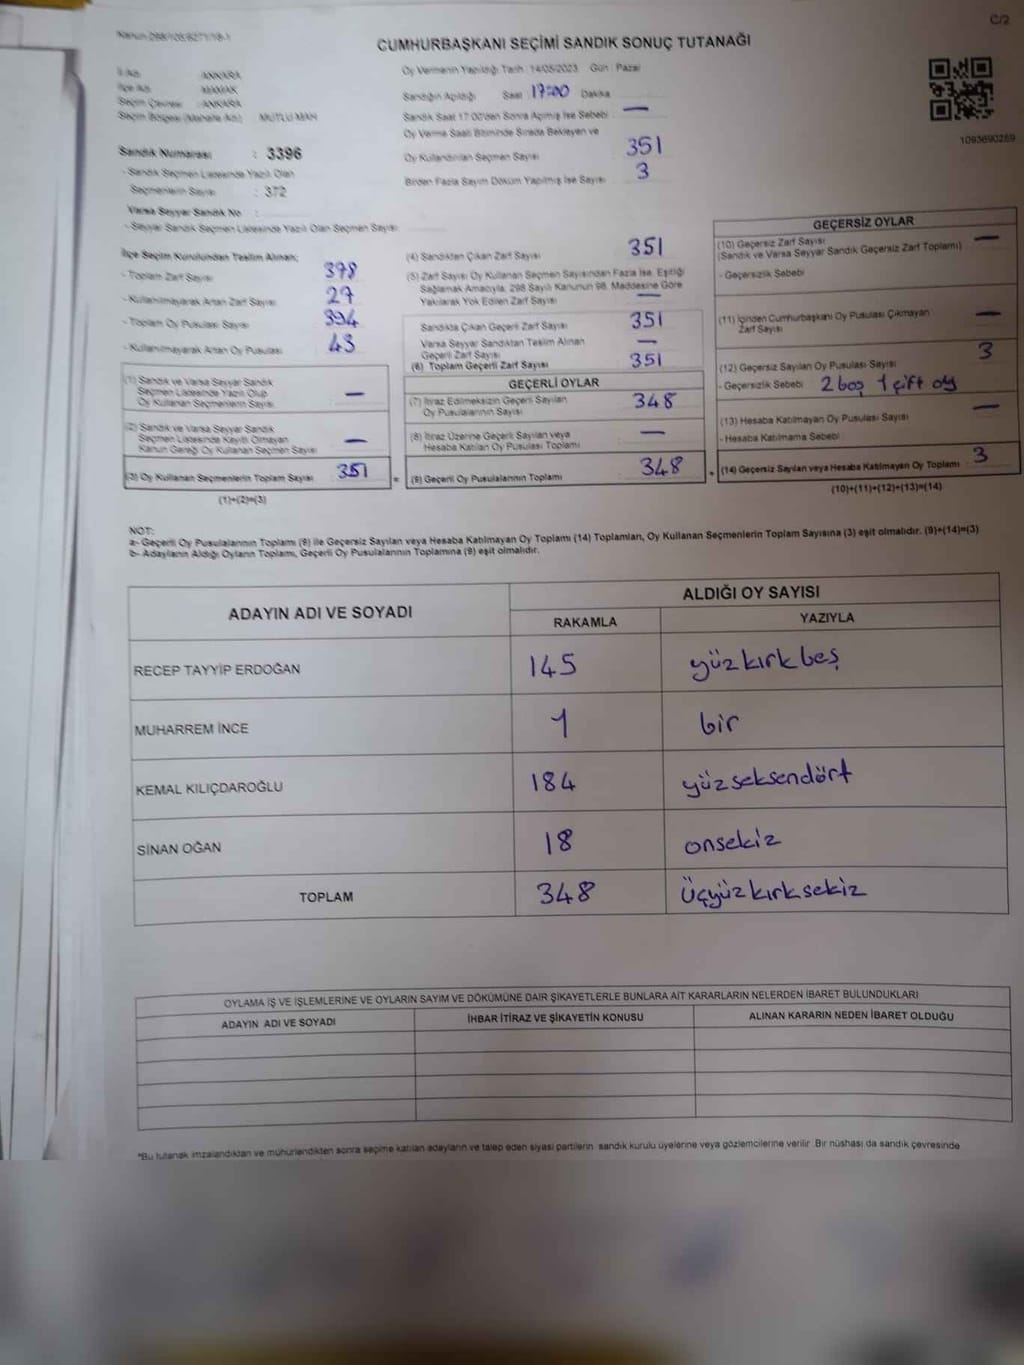 C/2
CUMHURBAŞKANI SEÇİMİ SANDIK SONUÇ TUTANAĞI
İl Adı : ANKARA
İlçe Adı : MAMAK
Seçim Çevresi : ANKARA
Seçim Bölgesi (Mahalle Adı) : MUTLU MAH
Sandık Numarası : 3396
- Sandık Seçmen Listesinde Yazılı Olan
Seçmenlerin Sayısı : 372
Varsa Seyyar Sandık No :
- Seyyar Sandık Seçmen Listesinde Yazılı Olan Seçmen Sayısı:
Oy Vermenin Yapıldığı Tarih : 14/05/2023 Gün : Pazar
Sandığın Açıldığı Saat 17:00 Dakika
Sandık Saat 17:00'den Sonra Açılmış İse Sebebi —
Oy Verme Saati Bitiminde Sırada Bekleyen ve
Oy Kullandırılan Seçmen Sayısı 351
Birden Fazla Sayım Döküm Yapılmış İse Sayısı 3
1093690269
İlçe Seçim Kurulundan Teslim Alınan;
- Toplam Zarf Sayısı 378
- Kullanılmayarak Artan Zarf Sayısı 27
- Toplam Oy Pusulası Sayısı 394
- Kullanılmayarak Artan Oy Pusulası 43
(1) Sandık ve Varsa Seyyar Sandık
Seçmen Listesinde Yazılı Olup
Oy Kullanan Seçmenlerin Sayısı —
(2) Sandık ve Varsa Seyyar Sandık
Seçmen Listesinde Kayıtlı Olmayan
Kanun Gereği Oy Kullanan Seçmen Sayısı —
(3) Oy Kullanan Seçmenlerin Toplam Sayısı 351
(1)+(2)=(3)
(4) Sandıktan Çıkan Zarf Sayısı 351
(5) Zarf Sayısı Oy Kullanan Seçmen Sayısından Fazla İse, Eşitliği
Sağlamak Amacıyla, 298 Sayılı Kanunun 98. Maddesine Göre
Yakılarak Yok Edilen Zarf Sayısı —
Sandıkta Çıkan Geçerli Zarf Sayısı 351
Varsa Seyyar Sandıktan Teslim Alınan
Geçerli Zarf Sayısı —
(6) Toplam Geçerli Zarf Sayısı 351
GEÇERLİ OYLAR
(7) İtiraz Edilmeksizin Geçerli Sayılan
Oy Pusulalarının Sayısı 348
(8) İtiraz Üzerine Geçerli Sayılan veya
Hesaba Katılan Oy Pusulası Toplamı —
= (9) Geçerli Oy Pusulalarının Toplamı 348 +
GEÇERSİZ OYLAR
(10) Geçersiz Zarf Sayısı
(Sandık ve Varsa Seyyar Sandık Geçersiz Zarf Toplamı) —
- Geçersizlik Sebebi
(11) İçinden Cumhurbaşkanı Oy Pusulası Çıkmayan
Zarf Sayısı —
(12) Geçersiz Sayılan Oy Pusulası Sayısı 3
- Geçersizlik Sebebi 2 boş 1 çift oy
(13) Hesaba Katılmayan Oy Pusulası Sayısı —
- Hesaba Katılmama Sebebi
(14) Geçersiz Sayılan veya Hesaba Katılmayan Oy Toplamı 3
(10)+(11)+(12)+(13)=(14)
NOT:
a- Geçerli Oy Pusulalarının Toplamı (9) ile Geçersiz Sayılan veya Hesaba Katılmayan Oy Toplamı (14) Toplamları, Oy Kullanan Seçmenlerin Toplam Sayısına (3) eşit olmalıdır. (9)+(14)=(3)
b- Adayların Aldığı Oyların Toplamı, Geçerli Oy Pusulalarının Toplamına (9) eşit olmalıdır.
ADAYIN ADI VE SOYADI
ALDIĞI OY SAYISI
RAKAMLA YAZIYLA
RECEP TAYYİP ERDOĞAN 145 yüzkırkbeş
MUHARREM İNCE 1 bir
KEMAL KILIÇDAROĞLU 184 yüzseksendört
SİNAN OĞAN 18 onsekiz
TOPLAM 348 Üçyüzkırksekiz
OYLAMA İŞ VE İŞLEMLERİNE VE OYLARIN SAYIM VE DÖKÜMÜNE DAİR ŞİKAYETLERLE BUNLARA AİT KARARLARIN NELERDEN İBARET BULUNDUKLARI
ADAYIN ADI VE SOYADI İHBAR İTİRAZ VE ŞİKAYETİN KONUSU ALINAN KARARIN NEDEN İBARET OLDUĞU
*Bu tutanak imzalandıktan ve mühürlendikten sonra seçime katılan adayların ve talep eden siyasi partilerin sandık kurulu üyelerine veya gözlemcilerine verilir. Bir nüshası da sandık çevresinde